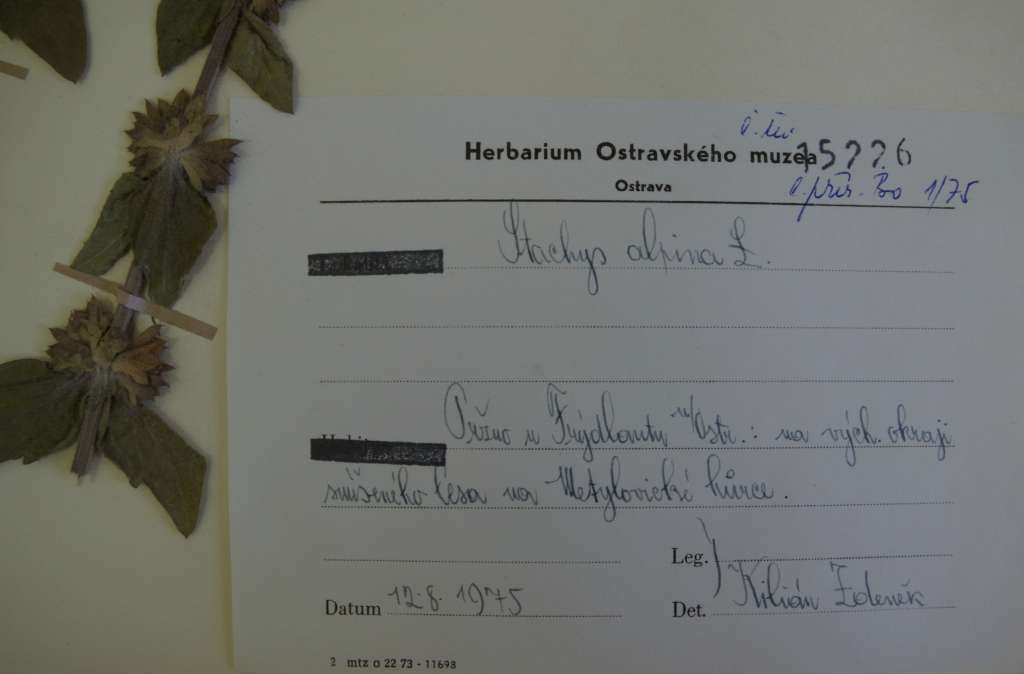 č. inv.
Herbarium Ostravského muzea 15226
Ostrava
č. přír. Bo 1/75
Stachys alpina L.
Pržno u Frýdlantu n/Ostr.: na vých. okraji
smíšeného lesa na Metylovické hůrce.
Leg.
Datum 12.8.1975
Det. Kilián Zdeněk
2 mtz o 22 73 - 11698